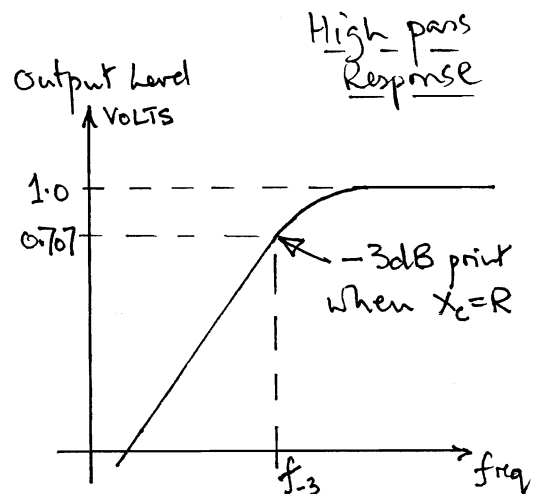 High pass
Response
Output Level
VOLTS
1.0
0.707
-3dB point
when Xc=R
f-3
freq